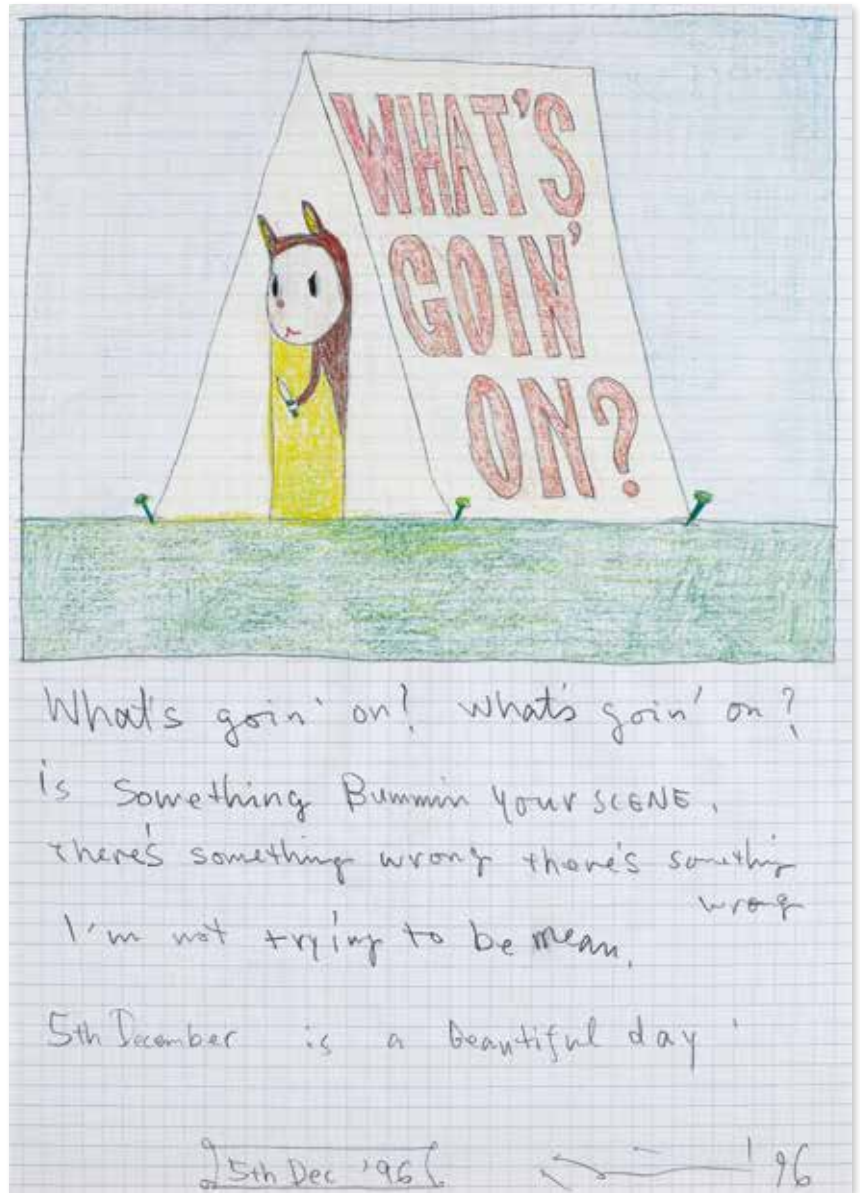 WHAT'S
GOIN'
ON?
What's goin' on? what's goin' on?
is something Bummin your SCENE.
there's something wrong there's somethin
wrong
I'm not trying to be mean.
5th December is a beautiful day!
5th Dec '96
'96